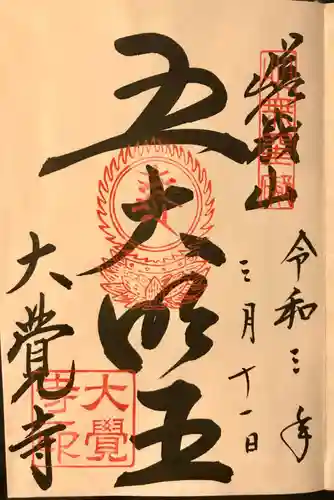 令和三年
三月十一日
嵯峨山
五大明王
大覺寺
大覺
寺印